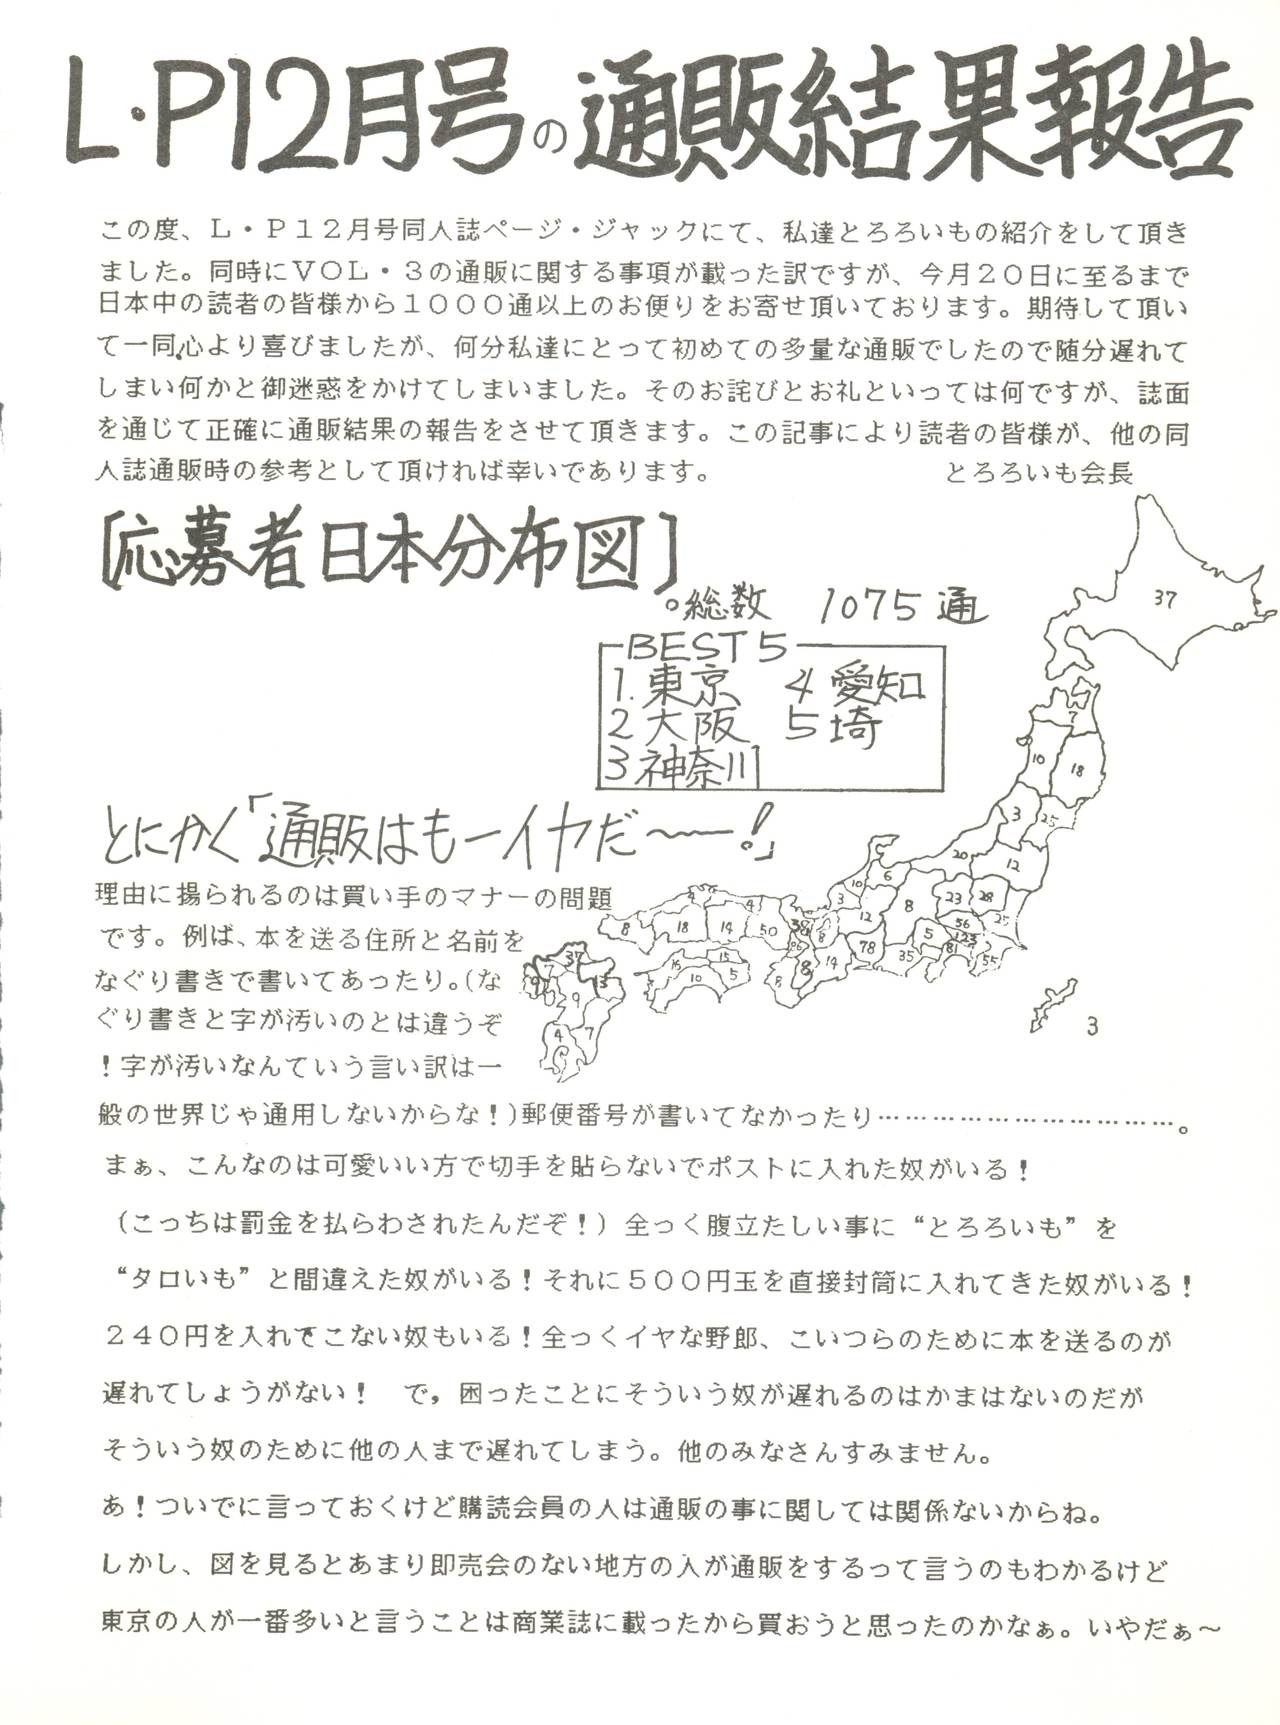 L・P12月号の通販結果報告
この度、L・P12月号同人誌ページ・ジャックにて、私達とろろいもの紹介をして頂き
ました。同時にVOL・3の通販に関する事項が載った訳ですが、今月20日に至るまで
日本中の読者の皆様から1000通以上のお便りをお寄せ頂いております。期待して頂い
て一同心より喜びましたが、何分私達にとって初めての多量な通販でしたので随分遅れて
しまい何かと御迷惑をかけてしまいました。そのお詫びとお礼といっては何ですが、誌面
を通じて正確に通販結果の報告をさせて頂きます。この記事により読者の皆様が、他の同
人誌通販時の参考として頂ければ幸いであります。 とろろいも会長
[応募者日本分布図]
。総数 1075通
BEST5
1.東京 4 愛知
2 大阪 5 埼
3 神奈川
37
7
10 18
3 25
20 12
6
10 3 8 23 28
12 56 25
5 123
78 35 81 55
8 18 14 50
4
8 14
8 8
15 5
10
37
7
9 13
9
4 7
3
とにかく「通販はもーイヤだ〜〜!」
理由に揚られるのは買い手のマナーの問題
です。例ば、本を送る住所と名前を
なぐり書きで書いてあったり。(な
ぐり書きと字が汚いのとは違うぞ
!字が汚いなんていう言い訳は一
般の世界じゃ通用しないからな!)郵便番号が書いてなかったり……………………………。
まぁ、こんなのは可愛いい方で切手を貼らないでポストに入れた奴がいる!
(こっちは罰金を払らわされたんだぞ!)全っく腹立たしい事に“とろろいも”を
“タロいも”と間違えた奴がいる!それに500円玉を直接封筒に入れてきた奴がいる!
240円を入れてこない奴もいる!全っくイヤな野郎、こいつらのために本を送るのが
遅れてしょうがない! で,困ったことにそういう奴が遅れるのはかまはないのだが
そういう奴のために他の人まで遅れてしまう。他のみなさんすみません。
あ!ついでに言っておくけど購読会員の人は通販の事に関しては関係ないからね。
しかし、図を見るとあまり即売会のない地方の人が通販をするって言うのもわかるけど
東京の人が一番多いと言うことは商業誌に載ったから買おうと思ったのかなぁ。いやだぁ~